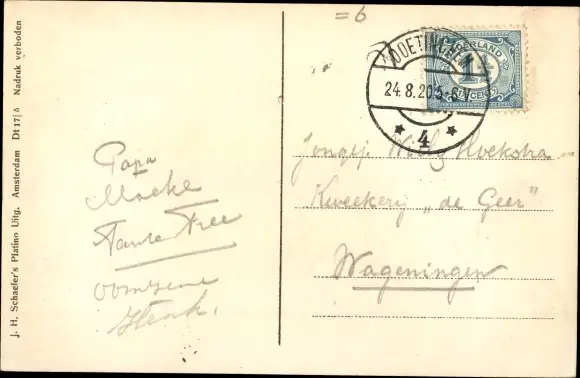 = 6
DOETINCHEM
24.8.20. 5-6N
4
NEDERLAND
1½
CENT
Jongej. Hoekstra
Kweekerij „de Geer"
Wageningen
Papa
Moeke
Tante Free
Henk.
J. H. Schaefer's Platino Uitg. Amsterdam Dt 17|8 Nadruk verboden